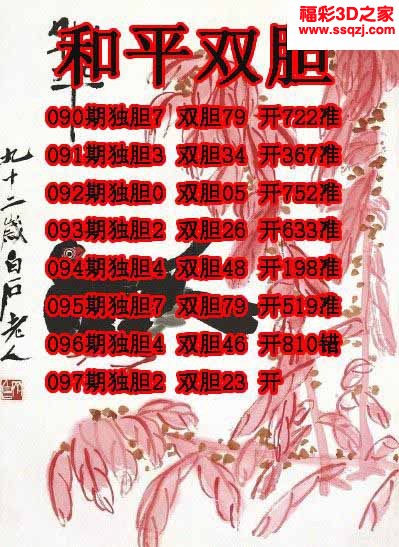 福彩3D之家
www.ssqzj.com
和平双胆
090期独胆7 双胆79 开722准
091期独胆3 双胆34 开367准
092期独胆0 双胆05 开752准
093期独胆2 双胆26 开633准
094期独胆4 双胆48 开198准
095期独胆7 双胆79 开519准
096期独胆4 双胆46 开810错
097期独胆2 双胆23 开
九十二岁白石老人